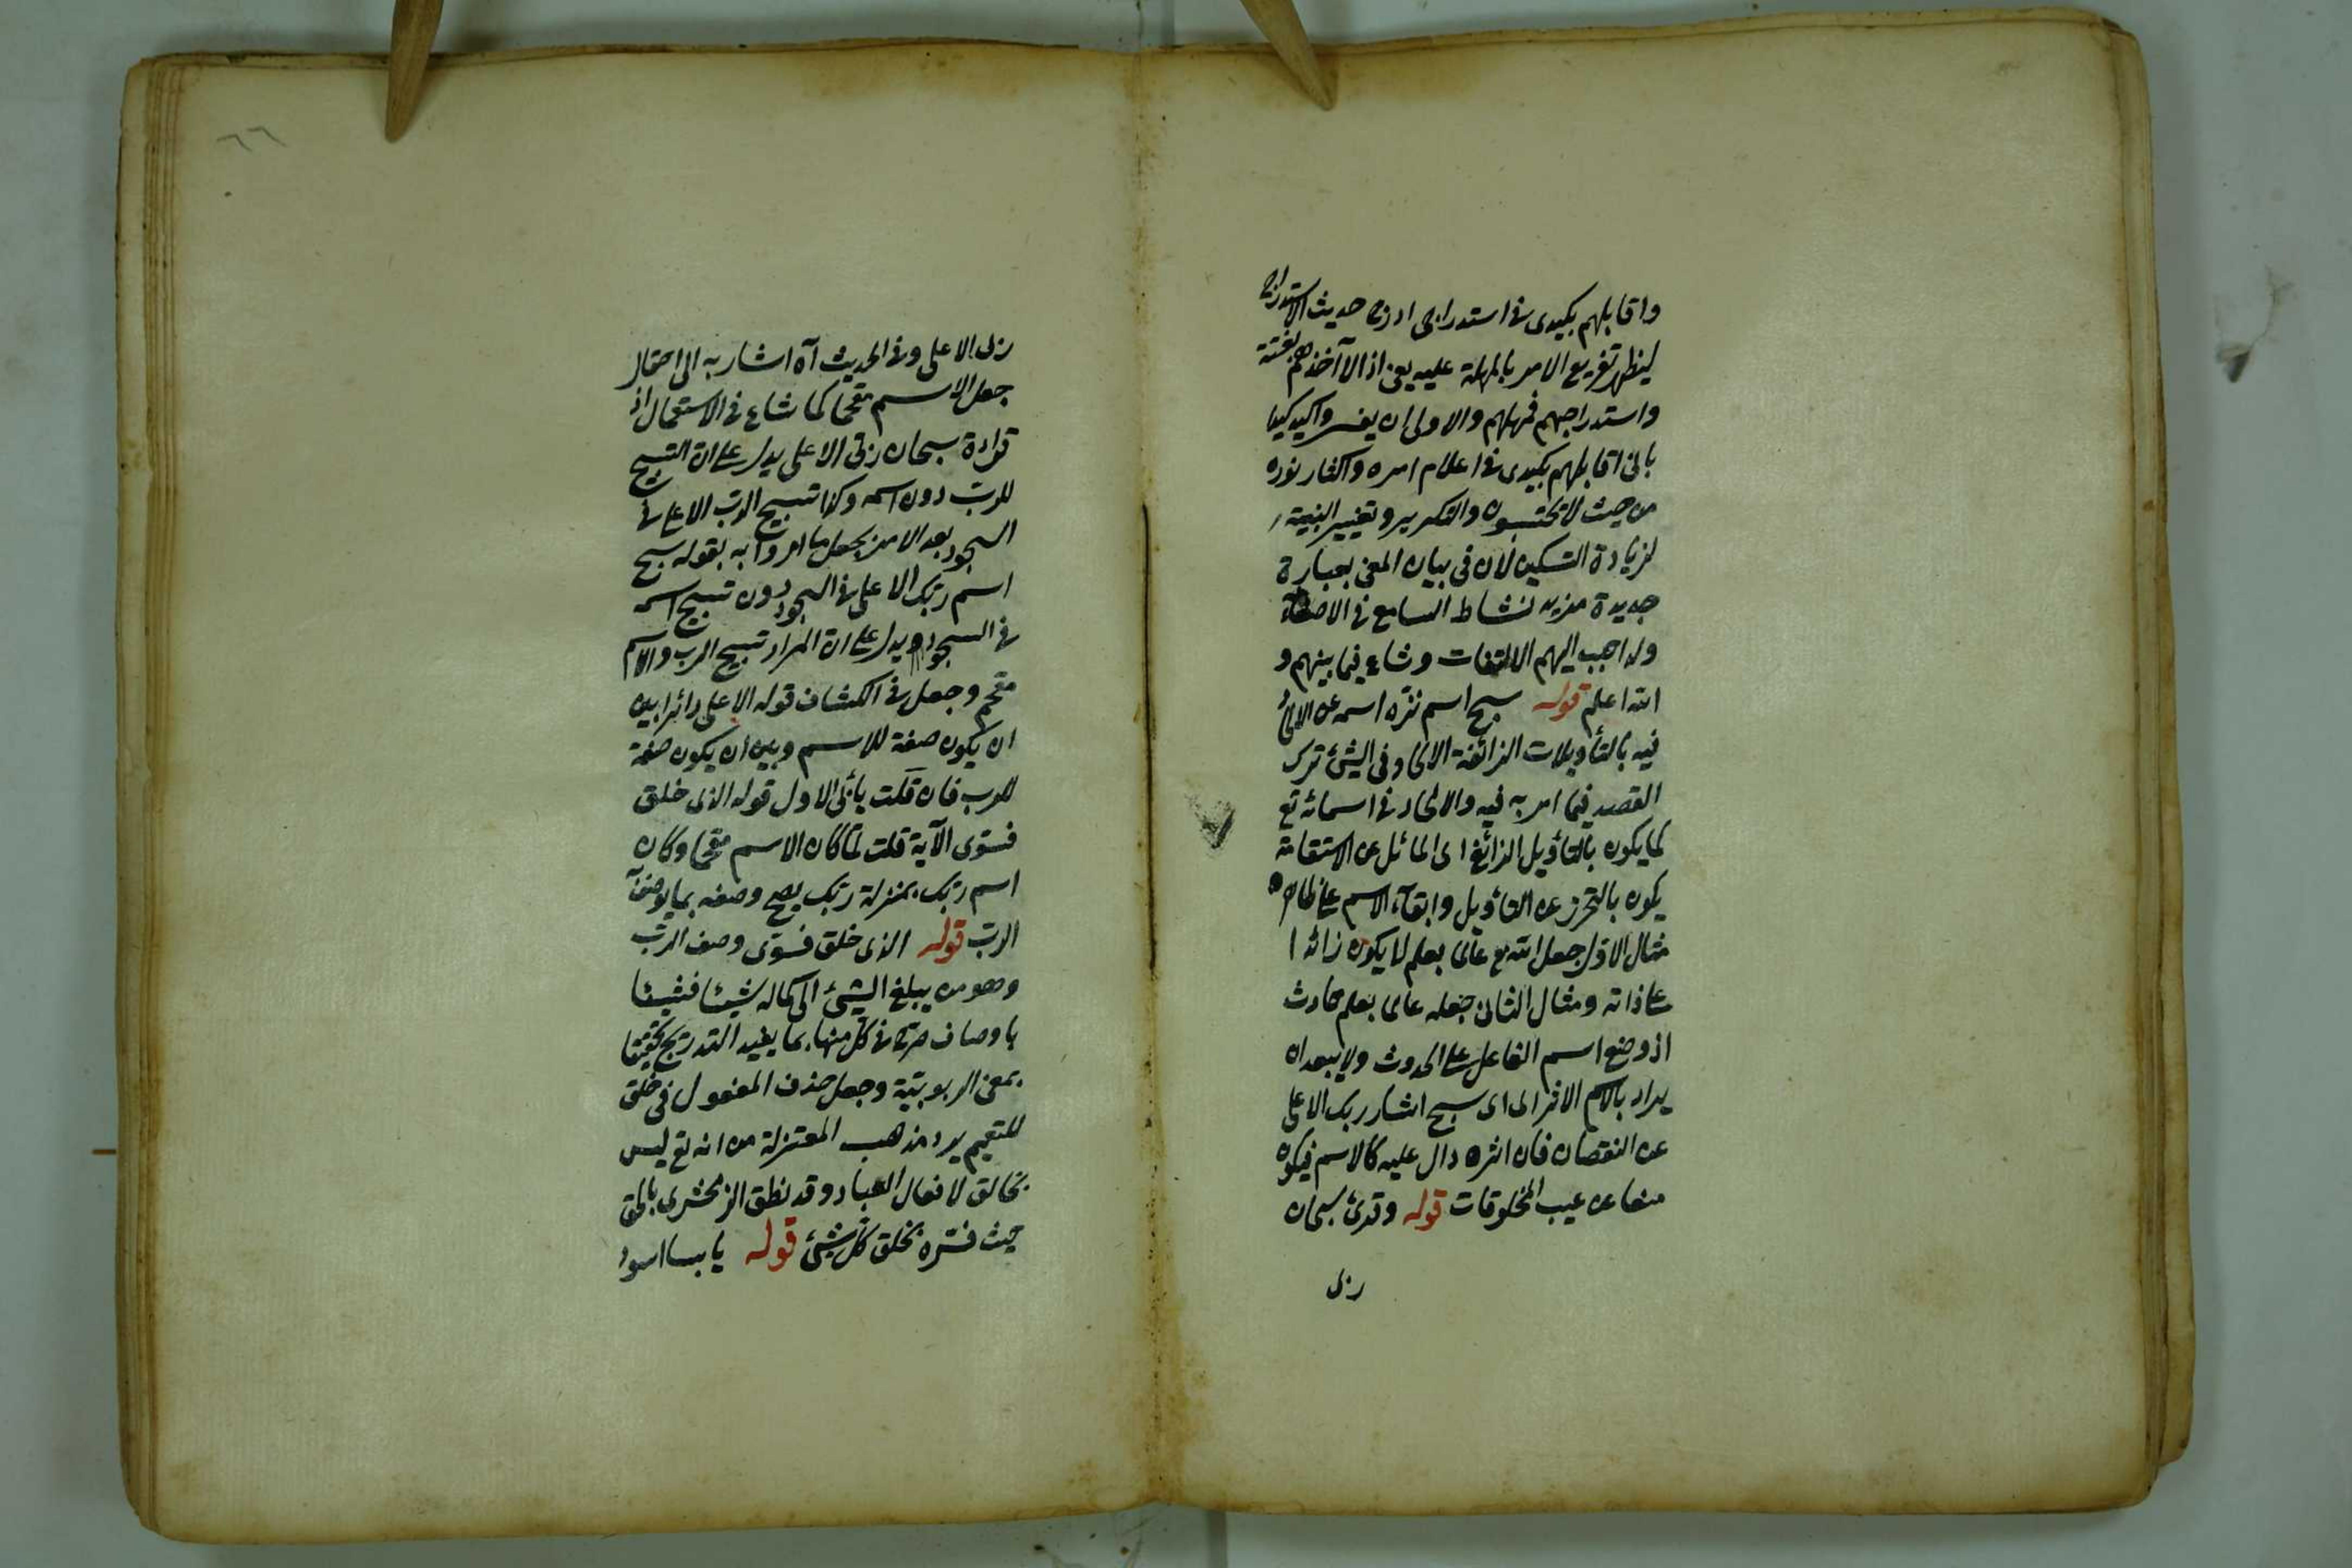 واقابلهم بكيدى فى استدراجى ادرج حديث الاستدراج
ليظهر تفريع الامر بالمهلة عليه يعنى اذا لا آخذهم بغتة
واستدراجهم فمهلهم والاولى ان يفسر واكيد كيدا
بانى اقابلهم بكيدى فى اعلام امره واكثار نوره
من حيث لا يحتسبون والتكرير وتغيير البنية
لزيادة التسكين لان فى بيان المعنى بعبارة
جديدة مزيد نشاط السامع فى الاصغاء
ولذا حبب اليهم الالتفات وشاع فيما بينهم و
الله اعلم قوله سبح اسم نزه اسمه عن الالحاد
فيه بالتأويلات الزائغة الالحاد فى الشئ ترك
القصد فيما امر به فيه والالحاد فى اسمائه تع
كما يكون بالتأويل الزائغ اى المائل عن الاستقامة
يكون بالتحرز عن التأويل وابقاء الاسم على ظاهره
مثال الاول جعل الله تع عالما بعلم لا يكون زائدا
على ذاته ومثال الثانى جعله عالما بعلم حادث
اذ وضع اسم الفاعل على الحدوث ولا يبعد ان
يراد بالاسم الاثر اى سبح اثار ربك الاعلى
عن النقصان فان اثره دال عليه كالاسم فيكون
عن عيب المخلوقات قوله وقرئ سبحان
ربى
٦٦
ربى الاعلى وفى الحديث آه اشار به الى احتمال
جعل الاسم مقحما كما شاع فى الاستعمال اذ
قراءة سبحان ربى الاعلى يدل على ان التسبيح
للرب دون اسمه وكذا تسبيح الرب الاعلى فى
السجود بعد الامر بجعل ما امروا به بقوله سبح
اسم ربك الاعلى فى السجود دون تسبيح اسمه
فى السجود ويدل على ان المراد تسبيح الرب والاسم
مقحم وجعل فى الكشاف قوله الاعلى دائرا بين
ان يكون صفة للاسم وبين ان يكون صفة
للرب فان قلت يأبى الاول قوله الذى خلق
فسوى الآية قلت لما كان الاسم مقحما وكان
اسم ربك بمنزلة ربك يصح وصفه بما يوصف به
الرب قوله الذى خلق فسوى وصف الرب
وهو من يبلغ الشئ الى كماله شيئا فشيئا
باوصاف صرح فى كل منها بما يفيد التدريج تحقيقا
بمعنى الربوبية وجعل حذف المفعول فى خلق
للتعميم يرد مذهب المعتزلة من انه تع ليس
بخالق لافعال العباد وقد نطق الزمخشرى بالحق
حيث فسره بخلق كل شئ قوله يابسا اسود